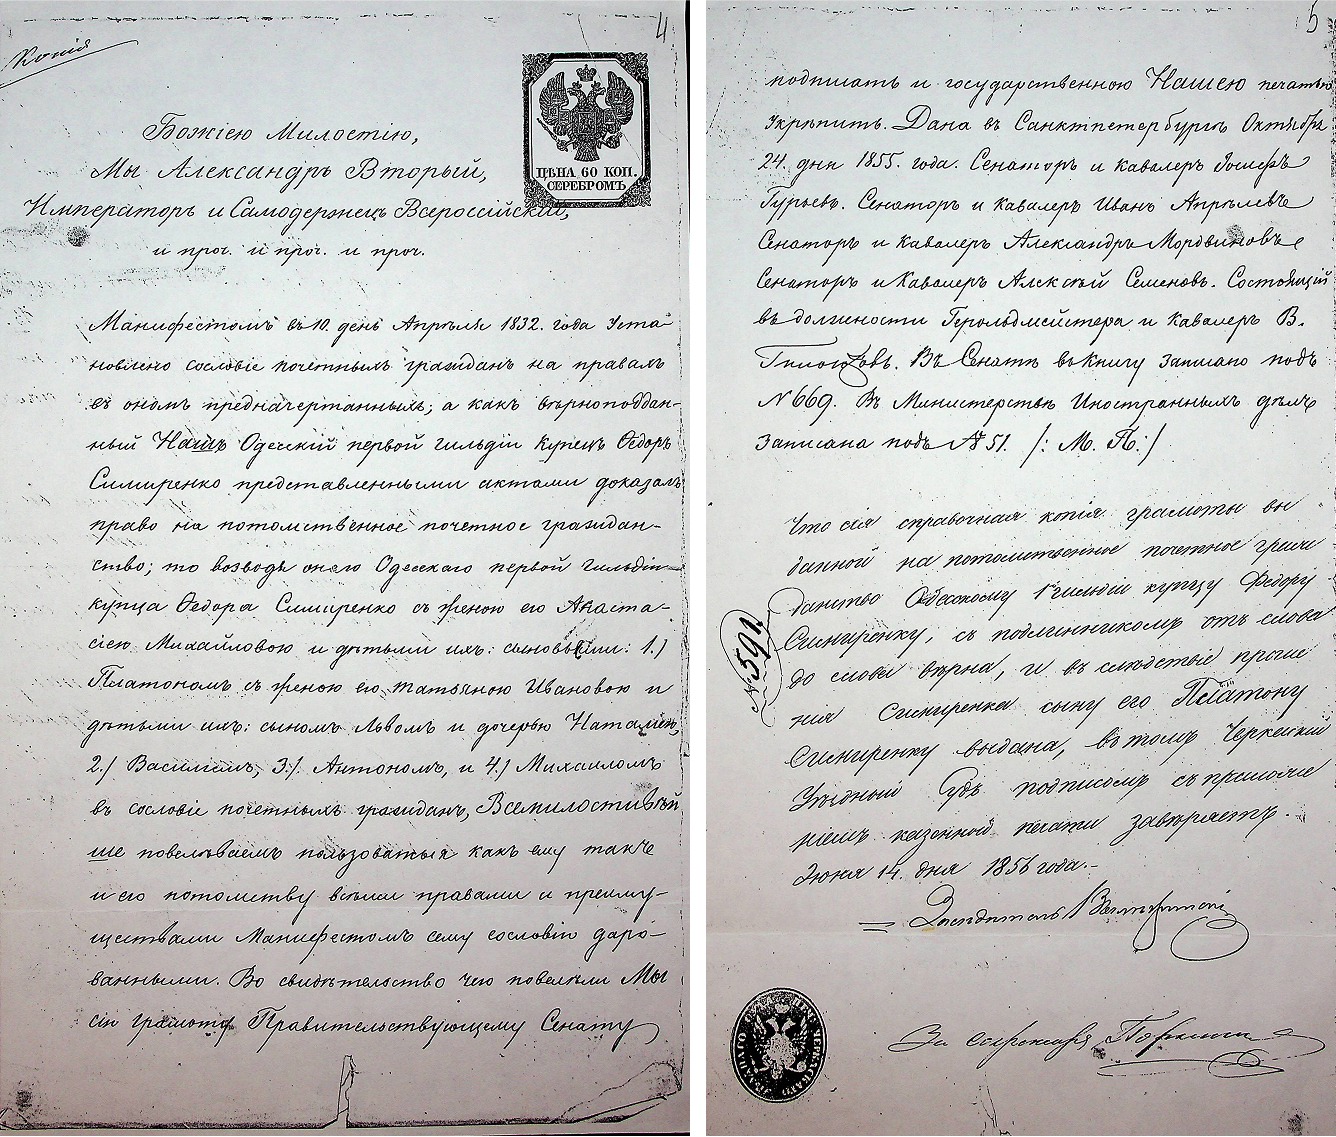 4
Копія
ЦѢНА 60 КОП.
СЕРЕБРОМЪ
Божіею Милостію,
Мы Александръ Вторый,
Императоръ и Самодержецъ Всероссійскій,
и проч. и проч. и проч.
Манифестомъ въ 10. день Апрѣля 1832. года уста-
новлено сословіе почетныхъ гражданъ на правахъ
въ ономъ предначертанныхъ; а какъ вѣрноподдан-
ный Нашъ Одесскій первой гильдіи купецъ Ѳедоръ
Симиренко представленными актами доказалъ
право на потомственное почетное граждан-
ство; то возводя онаго Одесскаго первой гильдіи
купца Ѳедора Симиренко съ женою его Анаста-
сіею Михайловою и дѣтьми ихъ: сыновьями: 1.)
Платономъ съ женою его Татьяною Ивановою и
дѣтьми ихъ: сыномъ Львомъ и дочерью Наталіею,
2.) Василіемъ, 3.) Антономъ, и 4.) Михаиломъ
въ сословіе почетныхъ гражданъ, Всемилостивѣй
ше повелѣваемъ пользоваться какъ ему такъ
и его потомству всѣми правами и преиму-
ществами Манифестомъ сему сословію даро-
ванными. Во свидѣтельство чего повелѣли Мы
сію грамоту Правительствующему Сенату
5
подписать и государственною Нашею печатью
укрѣпить. Дана въ Санктпетербургѣ Октября
24. дня 1855. года. Сенаторъ и кавалеръ Іосифъ
Гурьевъ. Сенаторъ и кавалеръ Иванъ Апрѣлевъ
Сенаторъ и кавалеръ Александръ Мордвиновъ
Сенаторъ и Кавалеръ Алексѣй Семеновъ. Состоящій
въ должности Герольдмейстера и кавалеръ В.
Въ Сенатѣ въ книгу записано подъ
№ 669. Въ Министерствѣ Иностранныхъ дѣлъ
записана подъ № 51. /: М. П.:/
Что сія справочная копія грамоты вы
данной на потомственное почетное граж
данство Одесскому 1 гильдіи купцу Федору
Симиренку, съ подлинникомъ отъ слова
до слова вѣрна, и въ слѣдствіе проше
нія Симиренка сыну его Платону
Симиренку выдана, въ томъ Черкаскій
Уѣздный Судъ подписомъ съ приложе
ніемъ казенной печати завѣряетъ.
Іюня 14. дня 1856 года.-
№ 591.
Засѣдатель
За секретаря